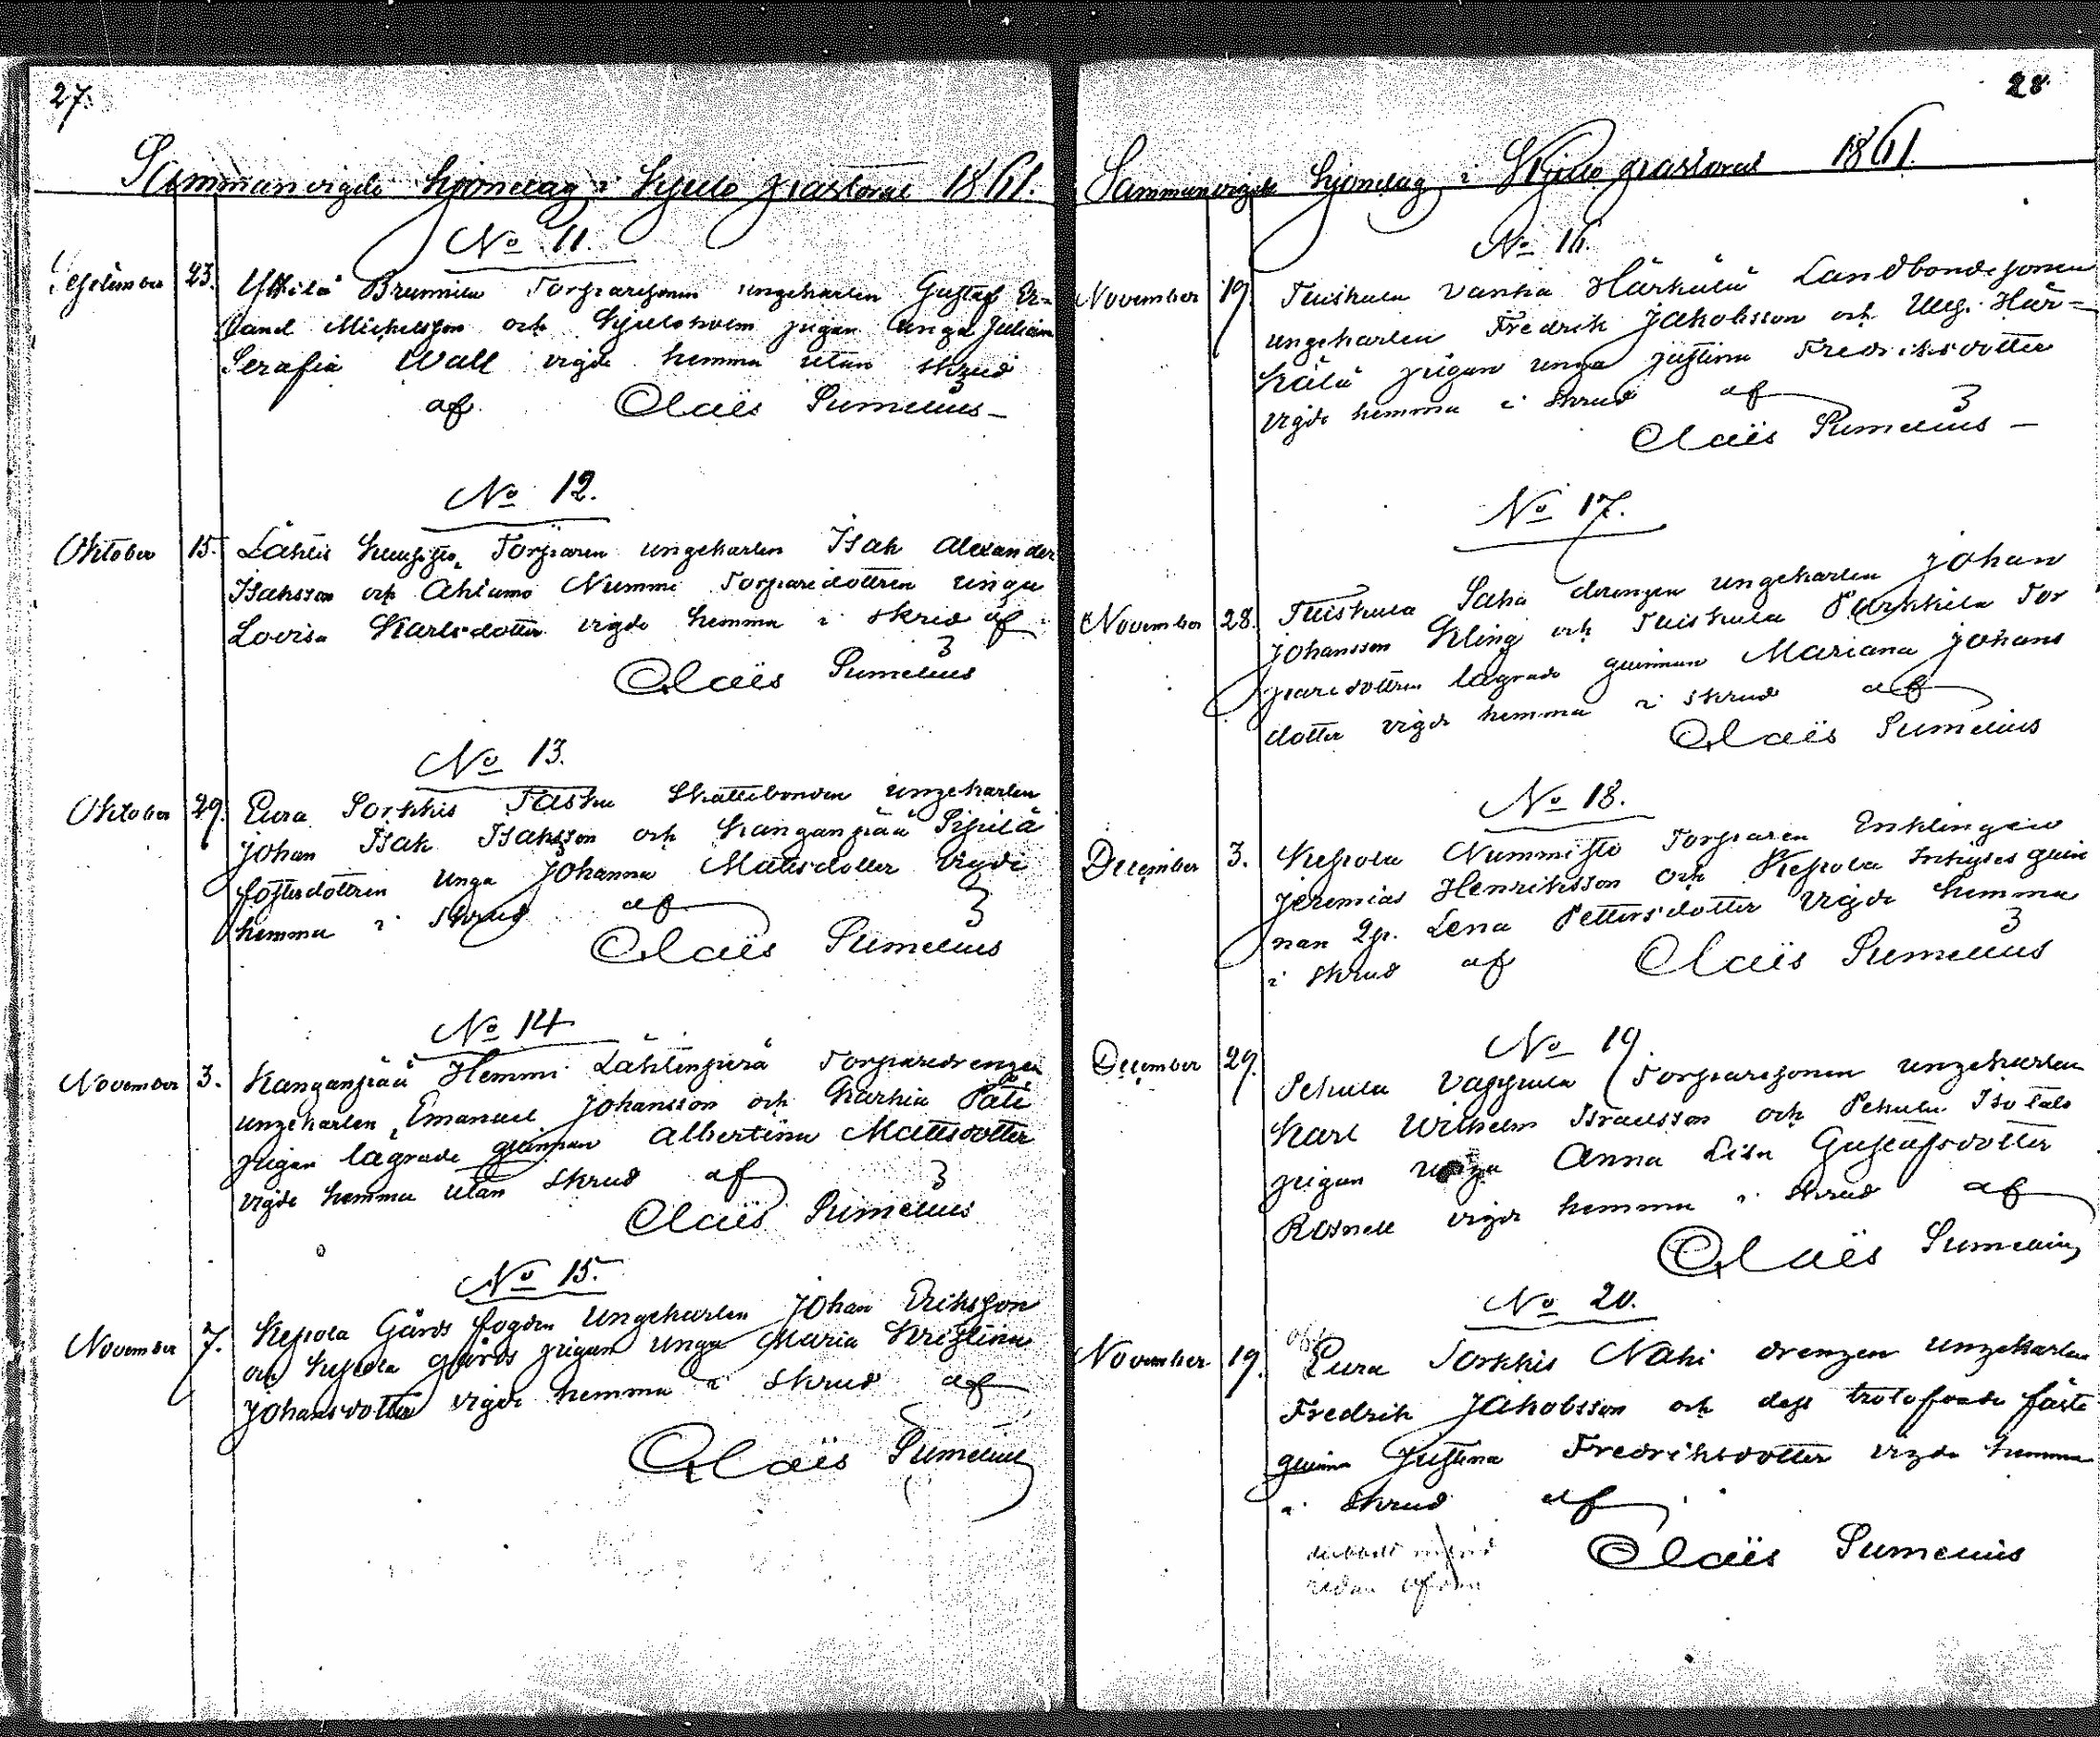 27.
Sammanvigde hjonelag i Kjulo pastorat 1861.
No 11.
September 23. Yttilä Brunnila Torparesonen ungekarlen Gustaf Er=
land Michelsson och Kjuloholm pigan unga Julian
Serafia Wall vigde hemma utan skrud
af Claës Sumelius
No 12.
Oktober 15. Lähteis Torparen ungekarlen Isak Alexander
Isaksson och Ahlamo Nummi Torparedottren unga
Lovisa Karlsdotter vigde hemma i skrud af
Claës Sumelius
No 13.
Oktober 29. Eura Sorkkis Tasku Skattebonden ungekarlen
Johan Isak Isaksson och Kanganpää Sipilä
fosterdottren unga Johanna Matsdotter vigde
hemma i skrud af
Claës Sumelius
No 14
November 3. Kanganpää Hemmi Lähtenperä Torparedrengen
ungekarlen Emanuel Johansson och Karhia Pati
pigan lägrade quinnan Albertina Mattsdotter
vigde hemma utan skrud af
Claës Sumelius
No 15.
November 7. Kepola Gårds fogden Ungekarlen Johan Eriksson
och Kepola gårds pigan unga Maria Kristina
Johansdotter vigde hemma i skrud af
Claës Sumelius
28
Sammanvigde hjonelag i Kjulo pastorat 1861.
No 16.
November 19. Tuiskula Vanha Härkälä Landbondesonen
ungekarlen Fredrik Jakobsson och Här=
kälä pigan unga Justina Fredriksdotter
vigde hemma i skrud af
Claës Sumelius
No 17.
November 28. Tuiskula Saha drengen ungekarlen Johan
Johansson Kling och Tuiskula Pärkkilä Tor
paredottren lägrade quinnan Mariana Johans
dotter vigde hemma i skrud af
Claës Sumelius
No 18.
December 3. Kepola Nummisto Torparen Enklingen
Jeremias Henriksson och Kepola Inhyses quin
nan Lena Pettersdotter vigde hemma
i skrud af Claës Sumelius
No 19
December 29. Pehula Vappula Torparesonen ungekarlen
Karl Wilhelm Israelsson och Pehula Iso talo
pigan unga Anna Lisa Gustafsdotter
Rosnell vigde hemma i skrud af
Claës Sumelius
No 20.
November 19. Eura Sorkkis Naki drengen ungekarlen
Fredrik Jakobsson och dess trolofvade fäste
quinna Justina Fredriksdotter vigde hemma
i skrud af
Claës Sumelius
redan ofvan